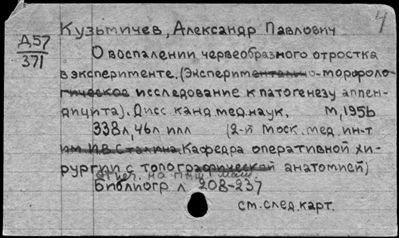 4
Кузьмичев, Александр Павлович
Д57
371
О воспалении червеобразного отростка
в эксперименте. (Экспериментально-морфоло-
гическое исследование к патогенезу аппен-
дицита). Дисс канд мед. наук. М, 1956
338 л, 46 л илл (2-й Моск. мед. ин-т
им. И.В. Сталина. Кафедра оперативной хи-
рургии с топографической анатомией)
Отпеч. на пиш. маш.
Библиогр л 208-237
см. след. карт.